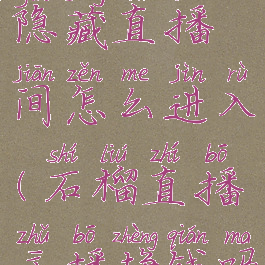 隐藏直播
jiān zěn me jìn rù
间怎么进入
shí liú zhí bō
(石榴直播
zhǔ bō zhèng qián ma
主播挣钱吗